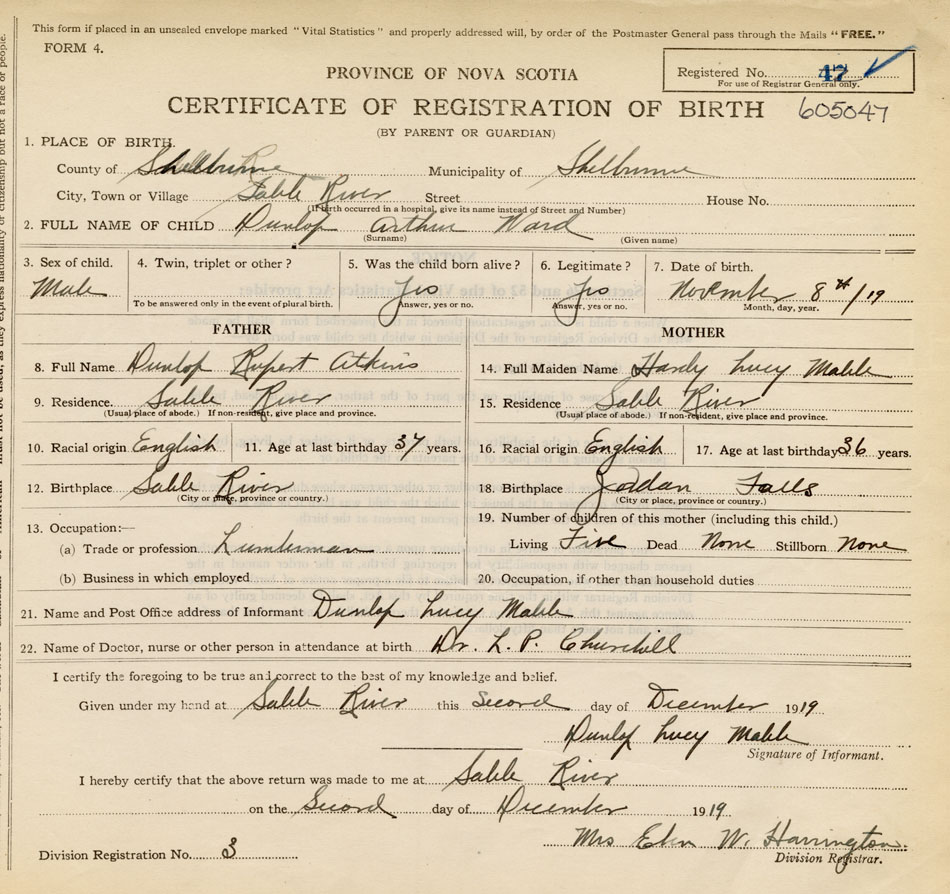 This form if placed in an unsealed envelope marked "Vital Statistics" and properly addressed will, by order of the Postmaster General pass through the Mails "FREE."
FORM 4.
Registered No. 47
For use of Registrar General only.
PROVINCE OF NOVA SCOTIA
CERTIFICATE OF REGISTRATION OF BIRTH 605047
(BY PARENT OR GUARDIAN)
1. PLACE OF BIRTH.
County of Shelburne Municipality of Shelburne
City, Town or Village Sable River Street House No.
(If birth occurred in a hospital, give its name instead of Street and Number)
2. FULL NAME OF CHILD Dunlop Arthur Ward
(Surname) (Given name)
3. Sex of child. 4. Twin, triplet or other? 5. Was the child born alive? 6. Legitimate? 7. Date of birth.
Male Yes Yes November 8th/19
To be answered only in the event of plural birth. Answer, yes or no. Answer, yes or no. Month, day, year.
FATHER MOTHER
8. Full Name Dunlop Rupert Atkins 14. Full Maiden Name Hardy Lucy Mable
9. Residence. Sable River 15. Residence Sable River
(Usual place of abode.) If non-resident, give place and province. (Usual place of abode.) If non-resident, give place and province.
10. Racial origin English 11. Age at last birthday 37 years. 16. Racial origin English 17. Age at last birthday 36 years.
12. Birthplace Sable River 18. Birthplace Jordan Falls
(City or place, province or country.) (City or place, province or country.)
13. Occupation:— 19. Number of children of this mother (including this child.)
(a) Trade or profession Lumberman Living Five Dead None Stillborn None
(b) Business in which employed 20. Occupation, if other than household duties
21. Name and Post Office address of Informant Dunlop Lucy Mable
22. Name of Doctor, nurse or other person in attendance at birth Dr. L. P. Churchill
I certify the foregoing to be true and correct to the best of my knowledge and belief.
Given under my hand at Sable River this Second day of December 1919
Dunlop Lucy Mable
Signature of Informant.
I hereby certify that the above return was made to me at Sable River
on the Second day of December 1919
Mrs W. Harrington
Division Registration No. 3 Division Registrar.